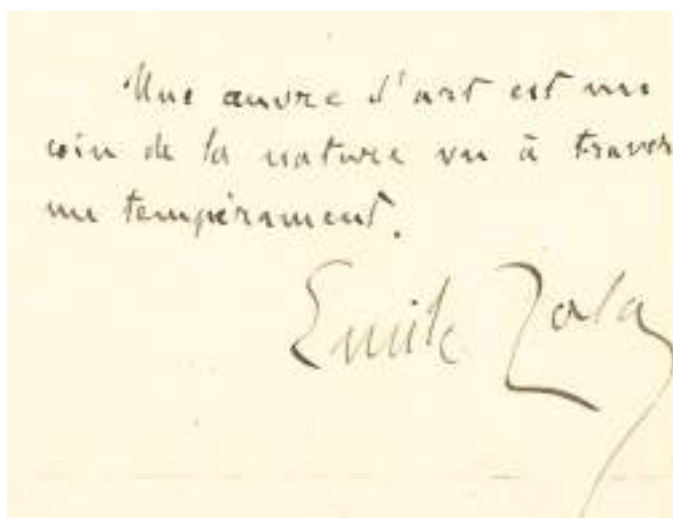 Une œuvre d'art est un
coin de la nature vu à travers
un tempérament.
Emile Zola